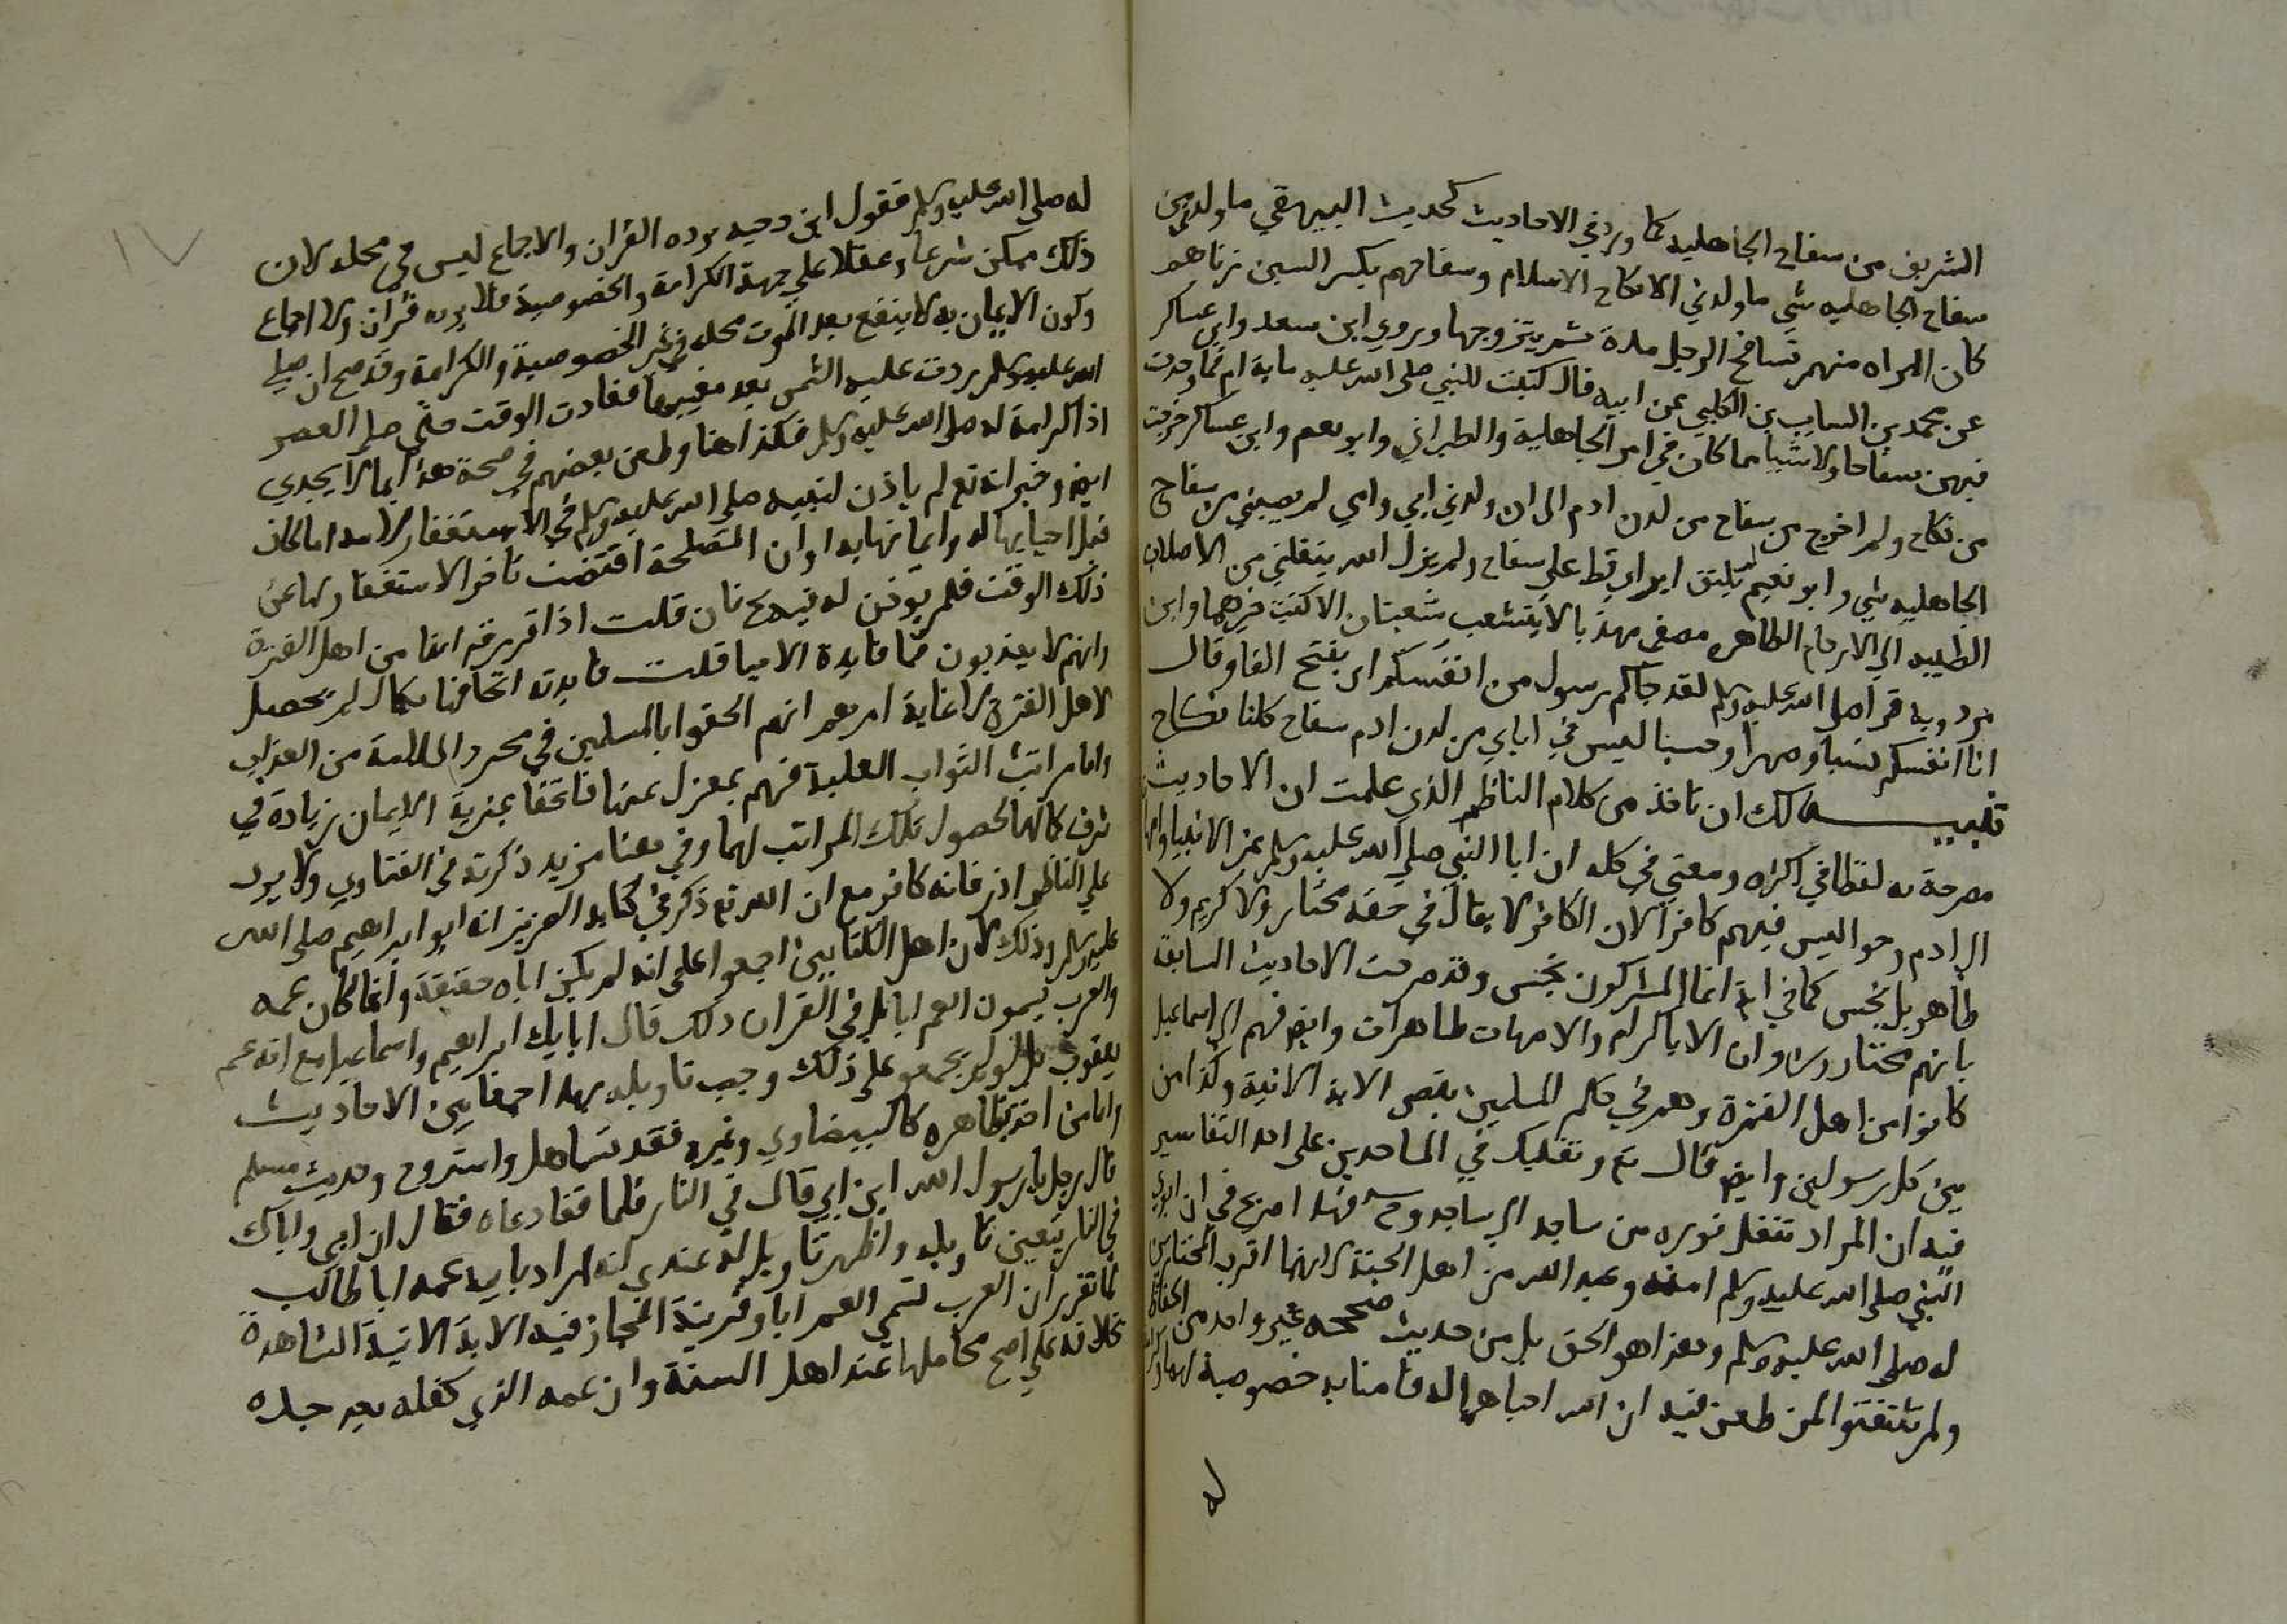 الشريف من سفاح الجاهلية كما ورد في الاحاديث كحديث البيهقي ما ولدني من
سفاح الجاهليه شي ما ولدني الا نكاح الاسلام وسفاحهم بكسر السين زناهم
كان المراه منهم تسافح الرجل مدة ثم يتزوجها وروي ابن سعد وابن عساكر
عن محمد بن السايب بن الكلبي عن ابيه قال كتبت للنبي صلى الله عليه ماية ام فما وجدت
فيهن سفاحا ولا شيا مما كان في امر الجاهلية والطبراني وابو نعيم وابن عساكر خرجت
من نكاح ولم اخرج من سفاح من لدن ادم الى ان ولدني ابي وامي لم يصبني من سفاح
الجاهليه شي وابو نعيم لم يلتق ابواي قط على سفاح ولم يزل الله ينقلني من الاصلاب
الطيبه الى الارحام الطاهره مصفى مهذبا لا يتشعب شعبتان الا كنت خيرهما وابن
مردويه قرا صلى الله عليه وسلم لقد جاكم رسول من انفسكم اي بفتح الفا وقال
انا انفسكم نسبا وصهرا وحسبا ليس في اباي من لدن ادم سفاح كلنا نكاح
تنبيه لك ان تاخذ من كلام الناظم الذي علمت ان الاحاديث
مصرحة به لفظا في اكثره ومعني في كله ان ابا النبي صلى الله عليه وسلم غير الانبيا وامها
الى ادم وحوا ليس فيهم كافر لان الكافر لا يقال في حقه مختار ولا كريم ولا
طاهر بل نجس كما في اية انما المشركون نجس وقد صرحت الاحاديث السابقة
بانهم مختارون وان الابا كرام والامهات طاهرات وايضا فهم الى اسماعيل
كانوا من اهل الفترة وهم في حكم المسلمين بنص الاية الاتية وكذا من
بين كل رسولين وايضا قال تع وتقلبك في الساجدين على احد التفاسير
فيه ان المراد تنقل نوره من ساجد الى ساجد وح فهذا صريح في ان ابوي
النبي صلى الله عليه وسلم امنه وعبد الله من اهل الجنة لانهما اقرب المختارين
له صلى الله عليه وسلم وهذا هو الحق بل من حديث صححه غير واحد من الحفاظ
ولم يلتفتوا لمن طعن فيه ان الله احياهما له فامنا به خصوصية لهما وكرامة
له
له صلى الله عليه وسلم فقول ابن دحيه يرده القران والاجماع ليس في محله لان
ذلك ممكن شرعا وعقلا على جهة الكرامة والخصوصية فلا يرده قران ولا اجماع
وكون الايمان به لا ينفع بعد الموت محله في غير الخصوصية والكرامة وقد صح انه صلى
الله عليه وسلم ردت عليه الشمس بعد مغيبها فعادت الوقت حتى صلى العصر
اذا كرامة له صلى الله عليه وسلم فكذا هنا وطعن بعضهم في صحة هذا بما لا يجدي
ايضا وخبر انه تع لم ياذن لنبيه صلى الله عليه وسلم في الاستغفار لامه اما كان
قبل احيايها له وايمانها به او ان المصلحة اقتضت تاخر الاستغفار لها عن
ذلك الوقت فلم يوذن له فيه ح فان قلت اذا قررتم انهما من اهل الفترة
وانهم لا يعذبون فما فايدة الاحيا قلت فايدته اتحافهما بكمال لم يحصل
لاهل الفترة لان غاية امرهم انهم الحقوا بالمسلمين في مجرد السلامة من العذاب
واما مراتب الثواب العلية فهم بمعزل عنها فاتحفا بمزية الايمان زيادة في
شرف كمالهما لحصول تلك المراتب لهما وفي هذا مزيد ذكرته في الفتاوي ولا يرد
على الناظم اذر فانه كافر مع ان الله تع ذكر في كتابه العزيز انه ابو ابراهيم صلى الله
عليه وسلم وذلك لان اهل الكتابين اجمعوا على انه لم يكن اباه حقيقة وانما كان عمه
والعرب يسمون العم ابا بل في القران ذلك قال ابايك ابراهيم واسماعيل مع انه عم
يعقوب بل لو لم يجمعوا على ذلك وجب تاويله بهذا جمعا بين الاحاديث
واما من اخذ بظاهره كالبيضاوي وغيره فقد تساهل واستروح وحديث مسلم
قال رجل يا رسول الله اين ابي قال في النار فلما قفا دعاه فقال ان ابي واباك
في النار يتعين تاويله واظهر تاويل له عندي انه اراد بابيه عمه ابا طالب
لما تقرر ان العرب تسمي العم ابا وقرينة المجاز فيه الاية الاتية الشاهدة
بخلافه على اصح محاملها عند اهل السنة وان عمه الذي كفله بعد جده